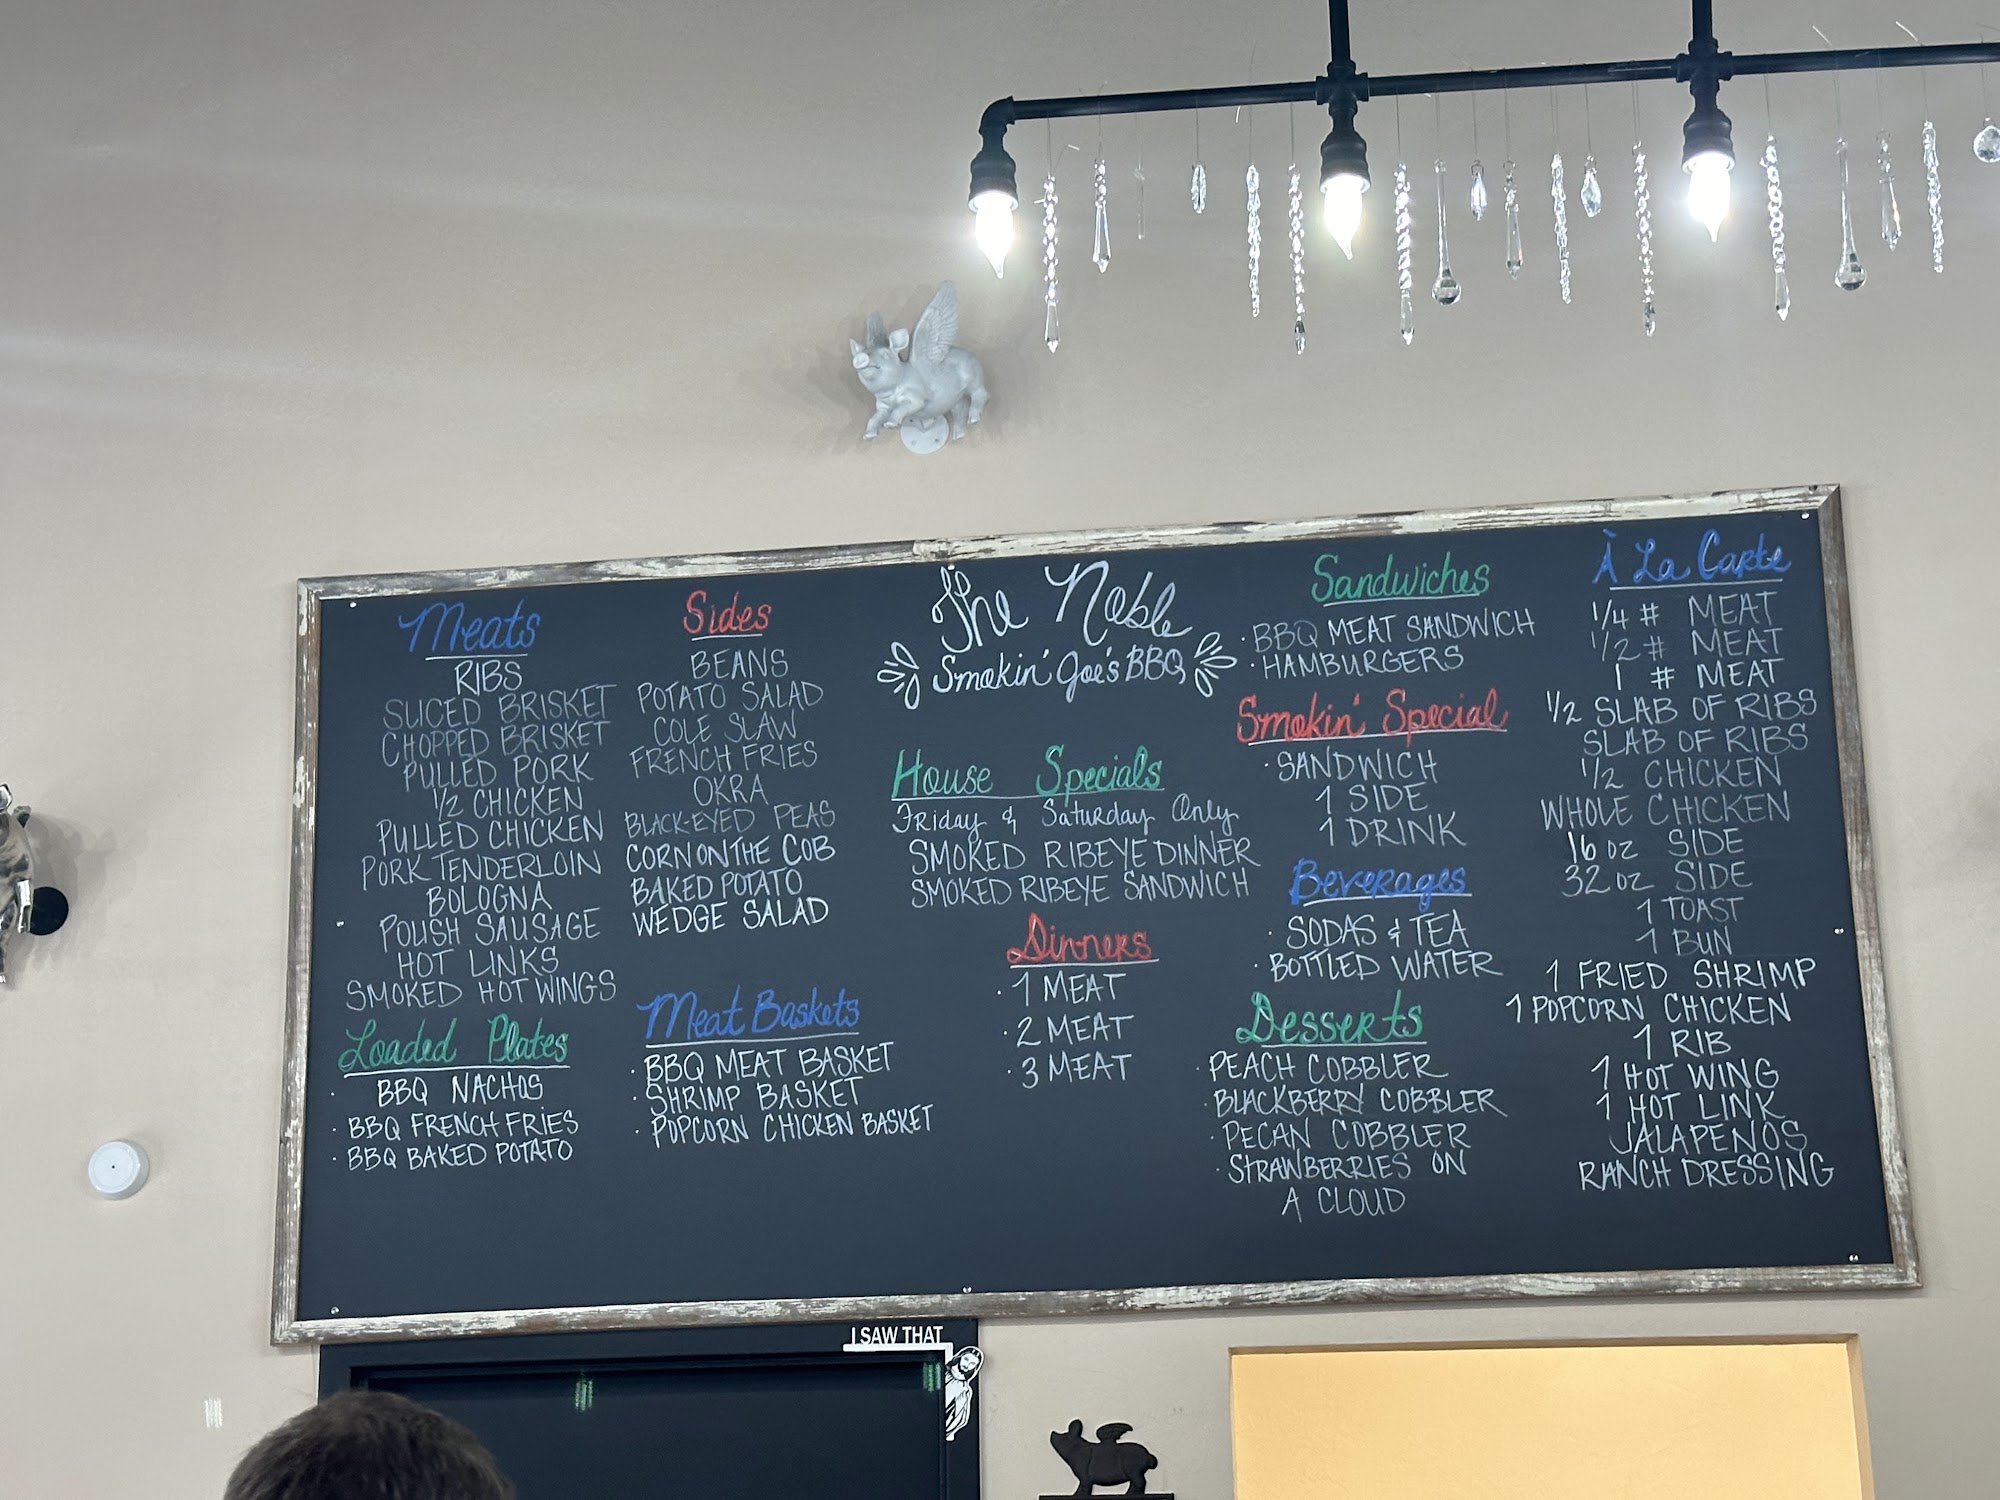 Meats
RIBS
SLICED BRISKET
CHOPPED BRISKET
PULLED PORK
1/2 CHICKEN
PULLED CHICKEN
PORK TENDERLOIN
BOLOGNA
POLISH SAUSAGE
HOT LINKS
SMOKED HOT WINGS
Loaded Plates
· BBQ NACHOS
· BBQ FRENCH FRIES
· BBQ BAKED POTATO
Sides
BEANS
POTATO SALAD
COLE SLAW
FRENCH FRIES
OKRA
BLACK-EYED PEAS
CORN ON THE COB
BAKED POTATO
WEDGE SALAD
Meat Baskets
· BBQ MEAT BASKET
· SHRIMP BASKET
· POPCORN CHICKEN BASKET
The Noble
Smokin' Joe's BBQ
House Specials
Friday & Saturday Only
SMOKED RIBEYE DINNER
SMOKED RIBEYE SANDWICH
Dinners
· 1 MEAT
· 2 MEAT
· 3 MEAT
Sandwiches
· BBQ MEAT SANDWICH
· HAMBURGERS
Smokin' Special
· SANDWICH
1 SIDE
1 DRINK
Beverages
· SODAS & TEA
· BOTTLED WATER
Desserts
· PEACH COBBLER
· BLACKBERRY COBBLER
· PECAN COBBLER
· STRAWBERRIES ON
A CLOUD
À La Carte
1/4 # MEAT
1/2 # MEAT
1 # MEAT
1/2 SLAB OF RIBS
SLAB OF RIBS
1/2 CHICKEN
WHOLE CHICKEN
16 oz SIDE
32 oz SIDE
1 TOAST
1 BUN
1 FRIED SHRIMP
1 POPCORN CHICKEN
1 RIB
1 HOT WING
1 HOT LINK
JALAPENOS
RANCH DRESSING
I SAW THAT